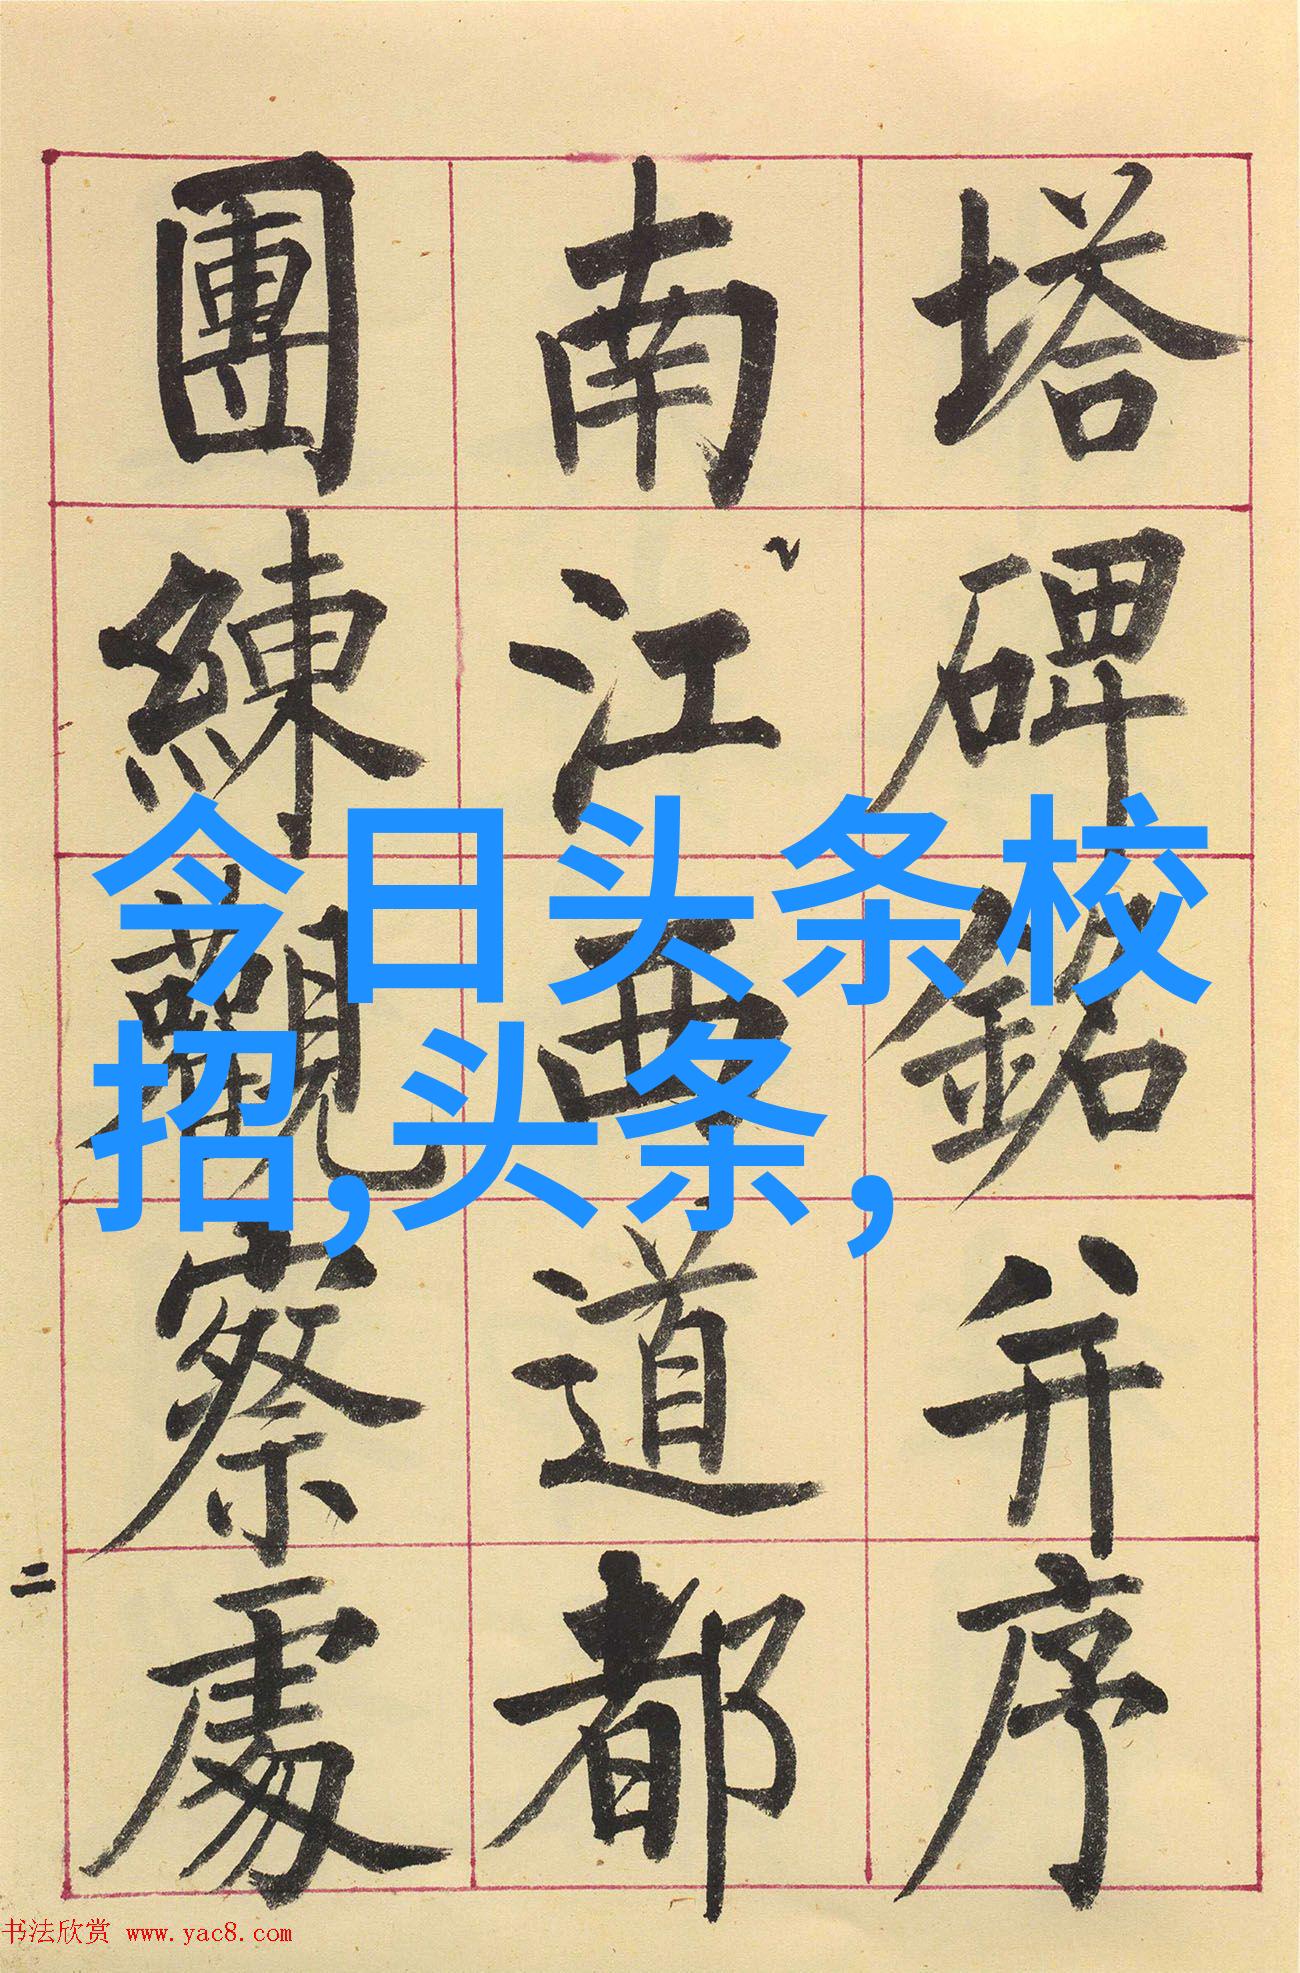 塔碑銘并序
南江西道都
團練觀察處
二
今日头条校
招,头条,
书法欣赏 www.yac8.com